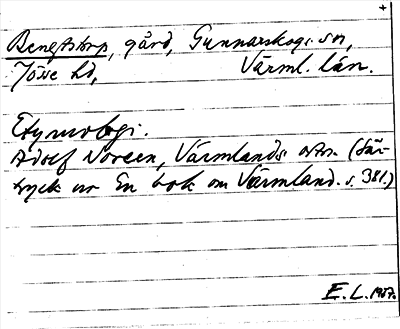 +
Bengtstorp, gård, Gunnarskogs sn,
Jösse hd, Värml. län.
Etymologi.
Adolf Noreen, Värmlands ortn. (Sär-
tryck ur En bok om Värmland. s. 381.)
E. L. 1967.